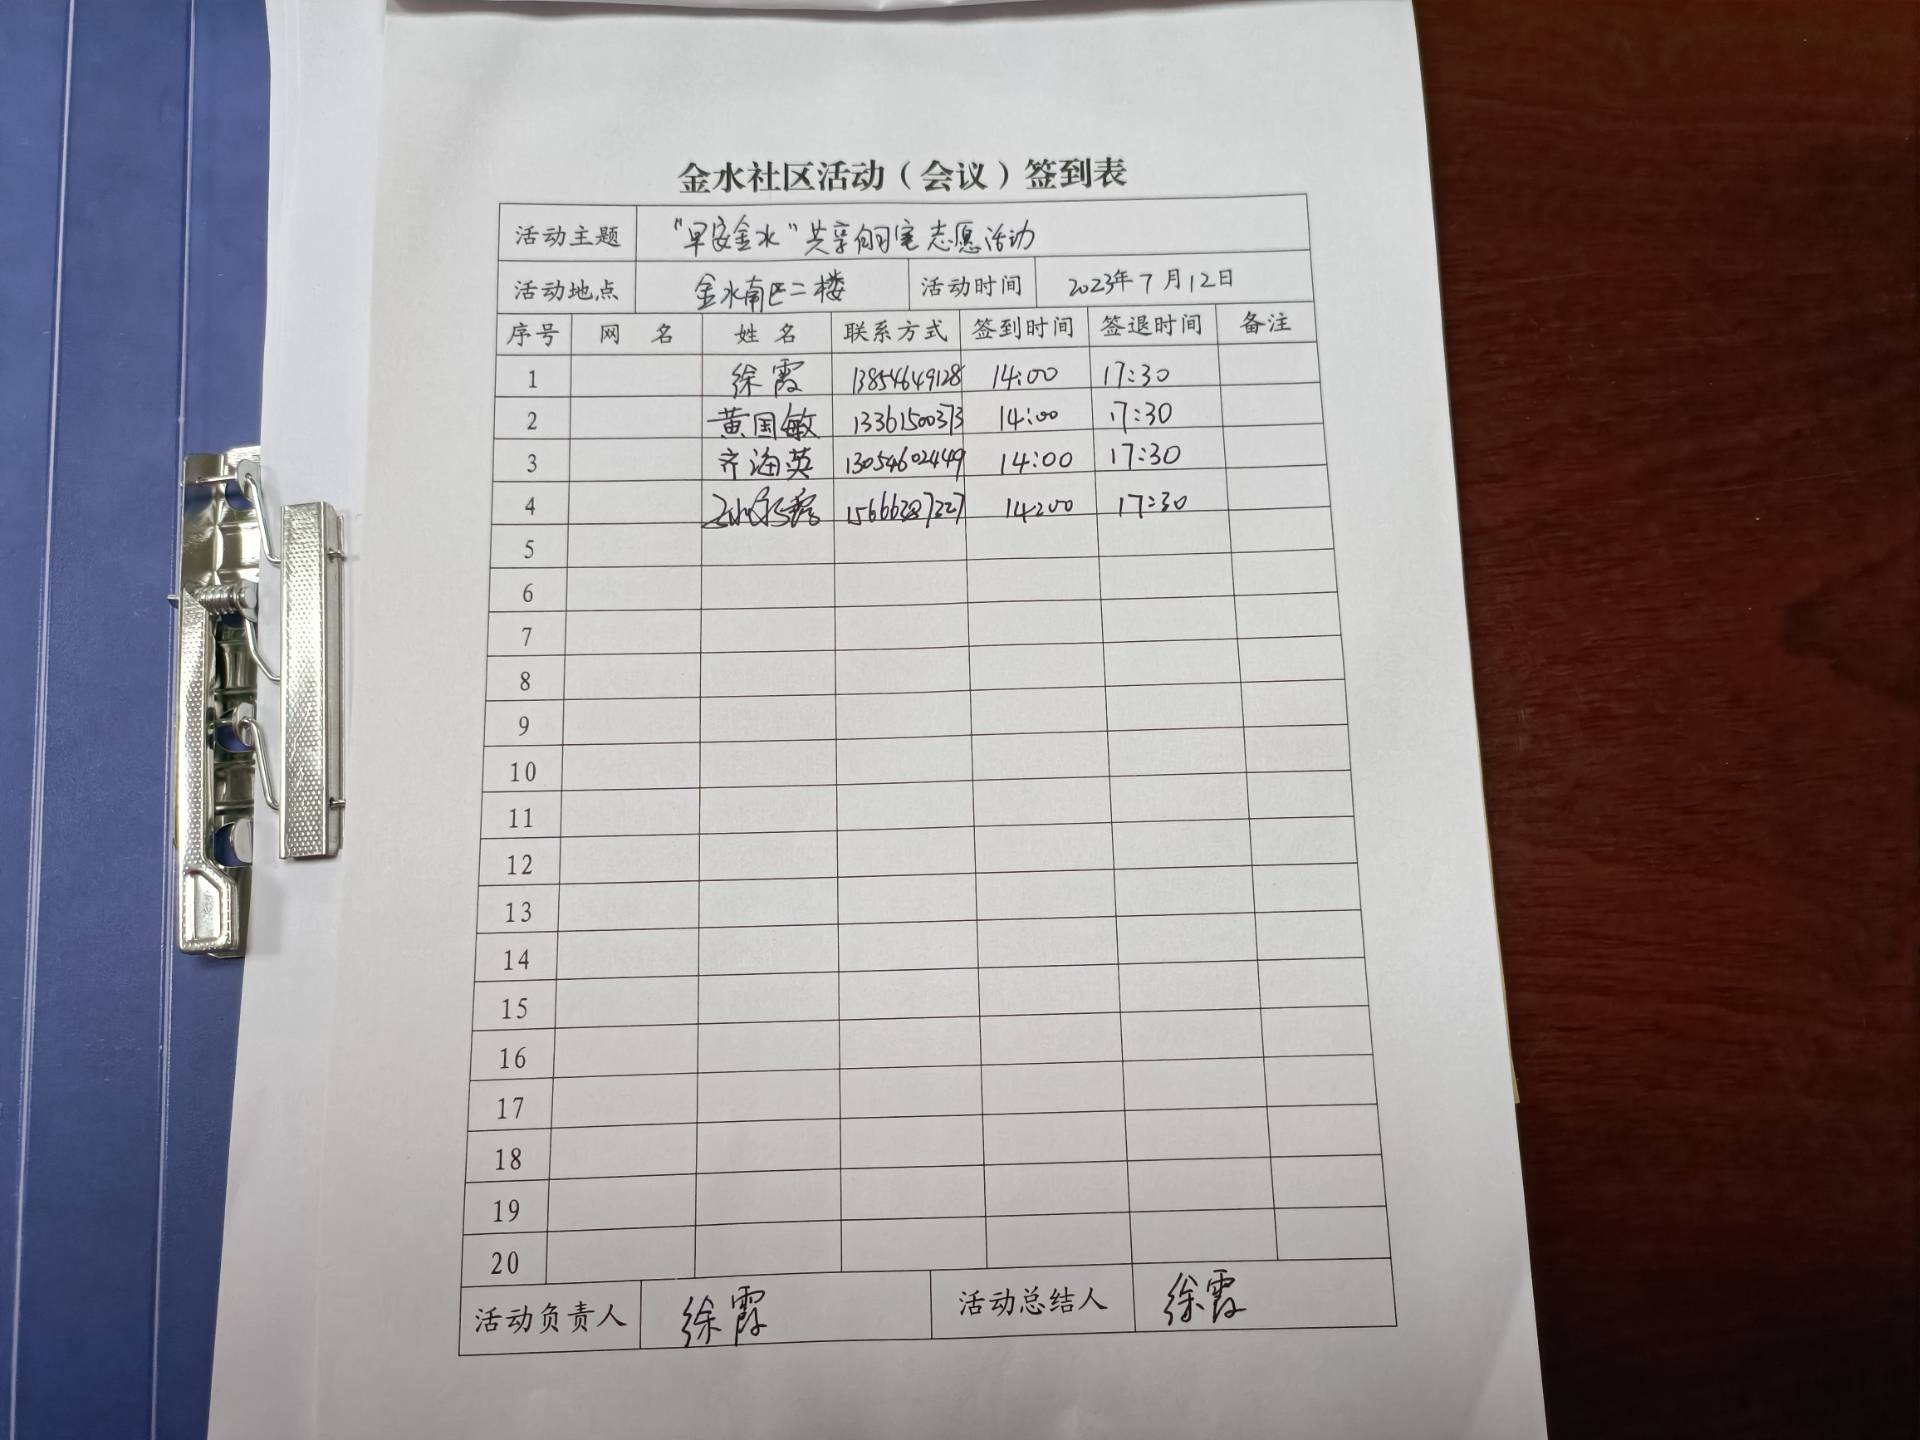 金水社区活动（会议）签到表
活动主题 "早安金水"共享自习室志愿活动
活动地点 金水南区二楼 活动时间 2023年7月12日
序号 网名 姓名 联系方式 签到时间 签退时间 备注
1 徐霞 13854649128 14:00 17:30
2 黄国敏 13361500373 14:00 17:30
3 齐海英 13054602449 14:00 17:30
4 14:00 17:30
5
6
7
8
9
10
11
12
13
14
15
16
17
18
19
20
活动负责人 徐霞 活动总结人 徐霞